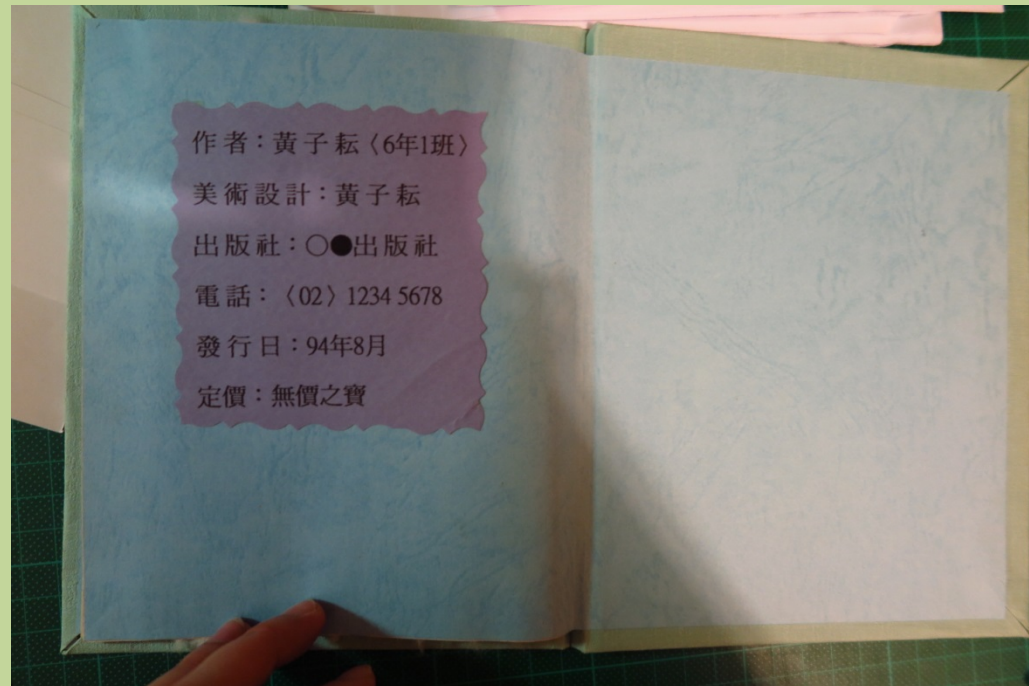 作者：黃子耘〈6年1班〉
美術設計：黃子耘
出版社：○●出版社
電話：〈02〉1234 5678
發行日：94年8月
定價：無價之寶